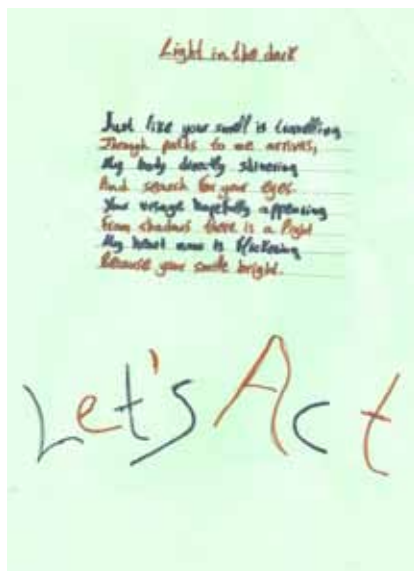 Light in the dark
Just like your smell is travelling
Through paths to me arrives,
My body directly shivering
And search for your eyes.
Your visage hopefully appearing
From shadows there is a light
My heart now is
Because your smile bright.
Let's Act